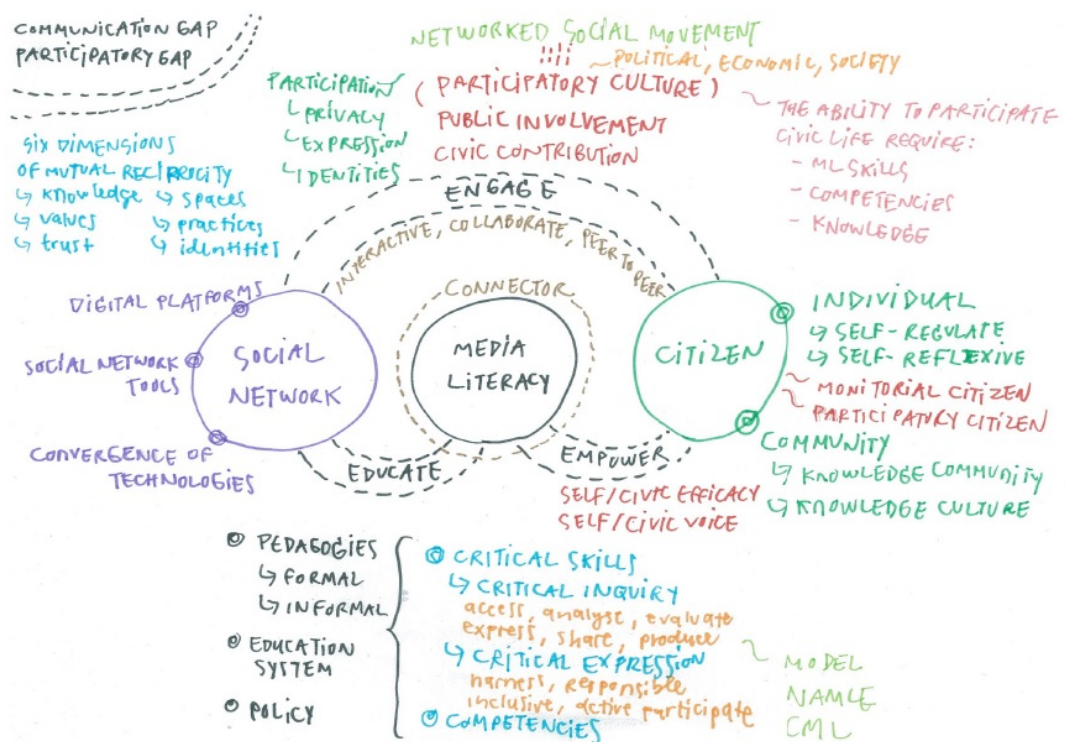 COMMUNICATION GAP
PARTICIPATORY GAP
NETWORKED SOCIAL MOVEMENT
POLITICAL, ECONOMIC, SOCIETY
(PARTICIPATORY CULTURE)
PUBLIC INVOLVEMENT
CIVIC CONTRIBUTION
PARTICIPATION
↳ PRIVACY
↳ EXPRESSION
↳ IDENTITIES
THE ABILITY TO PARTICIPATE
CIVIC LIFE REQUIRE:
- ML SKILLS
- COMPETENCIES
- KNOWLEDGE
SIX DIMENSIONS
OF MUTUAL RECIPROCITY
↳ knowledge ↳ spaces
↳ values ↳ practices
↳ trust ↳ identities
ENGAGE
INTERACTIVE, COLLABORATE, PEER TO PEER
CONNECTOR
DIGITAL PLATFORMS
SOCIAL NETWORK
TOOLS
CONVERGENCE OF
TECHNOLOGIES
SOCIAL
NETWORK
MEDIA
LITERACY
CITIZEN
INDIVIDUAL
↳ SELF-REGULATE
↳ SELF-REFLEXIVE
MONITORIAL CITIZEN
PARTICIPATORY CITIZEN
COMMUNITY
↳ KNOWLEDGE COMMUNITY
↳ KNOWLEDGE CULTURE
EDUCATE
EMPOWER
SELF/CIVIC EFFICACY
SELF/CIVIC VOICE
PEDAGOGIES
↳ FORMAL
↳ INFORMAL
EDUCATION
SYSTEM
POLICY
CRITICAL SKILLS
↳ CRITICAL INQUIRY
access, analyse, evaluate
express, share, produce
↳ CRITICAL EXPRESSION
harness, responsible
inclusive, active participate
COMPETENCIES
MODEL
NAMLE
CML